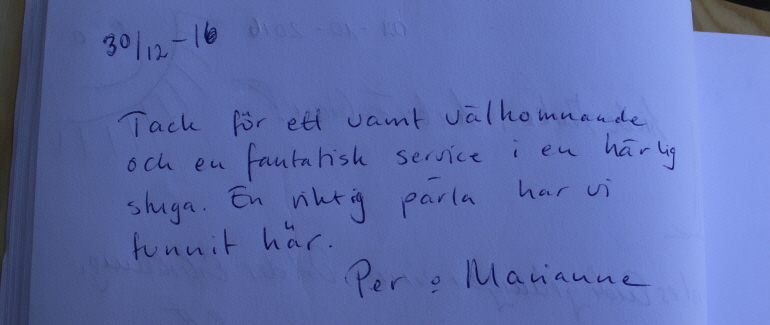 30/12-16
Tack för ett vamt välkomnande
och en fantatisk service i en härlig
stuga. En riktig pärla har vi
funnit här.
Per o Marianne